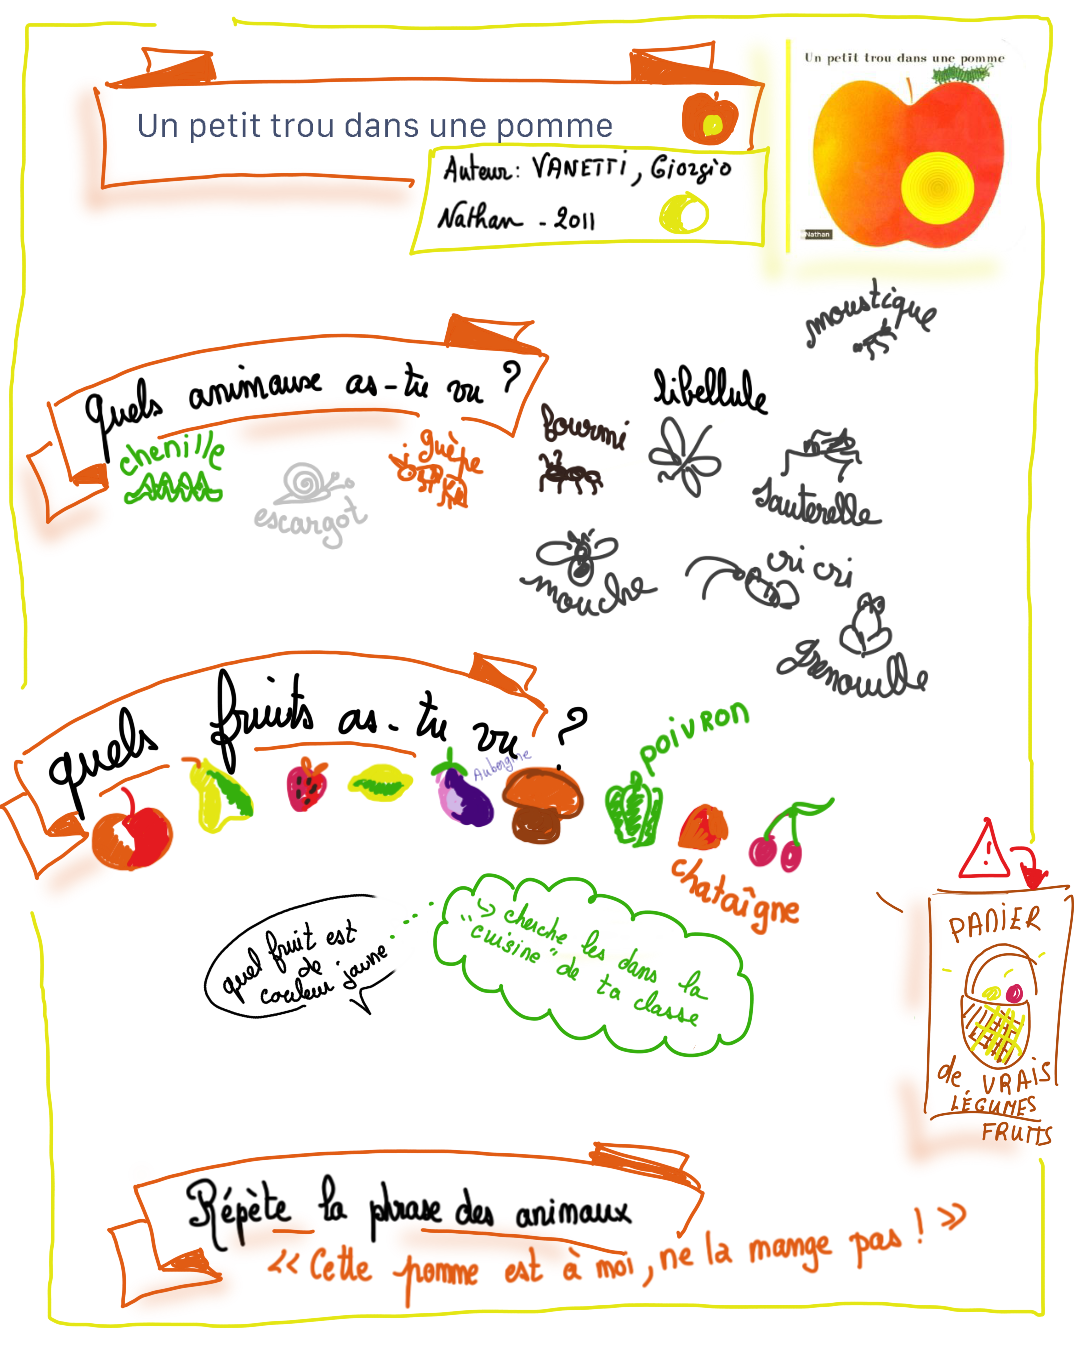 Un petit trou dans une pomme
Auteur: VANETTI, Giorgio
Nathan - 2011
Un petit trou dans une pomme
Nathan
moustique
Quels animaux as-tu vu ?
chenille
escargot
guêpe
fourmi
libellule
sauterelle
mouche
cri cri
grenouille
quels fruits as-tu vu ?
Aubergine
poivron
chataîgne
quel fruit est
de
couleur jaune
↳ cherche les dans la
"cuisine" de ta classe
!
PANIER
de VRAIS
LÉGUMES
FRUITS
Répète la phrase des animaux
<< Cette pomme est à moi, ne la mange pas ! >>